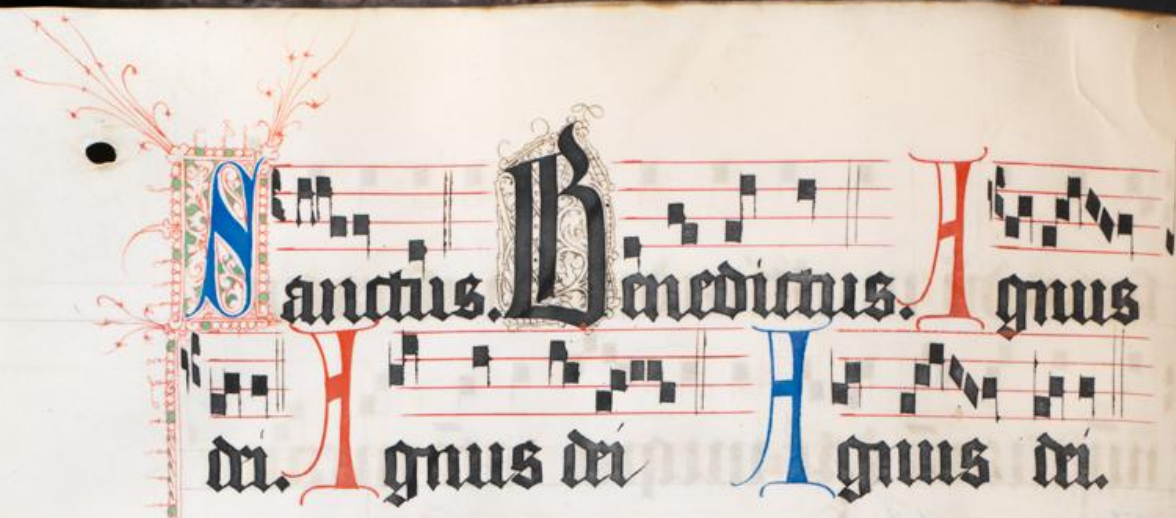 Sanctus. Benedictus. Agnus
dei. Agnus dei Agnus dei.